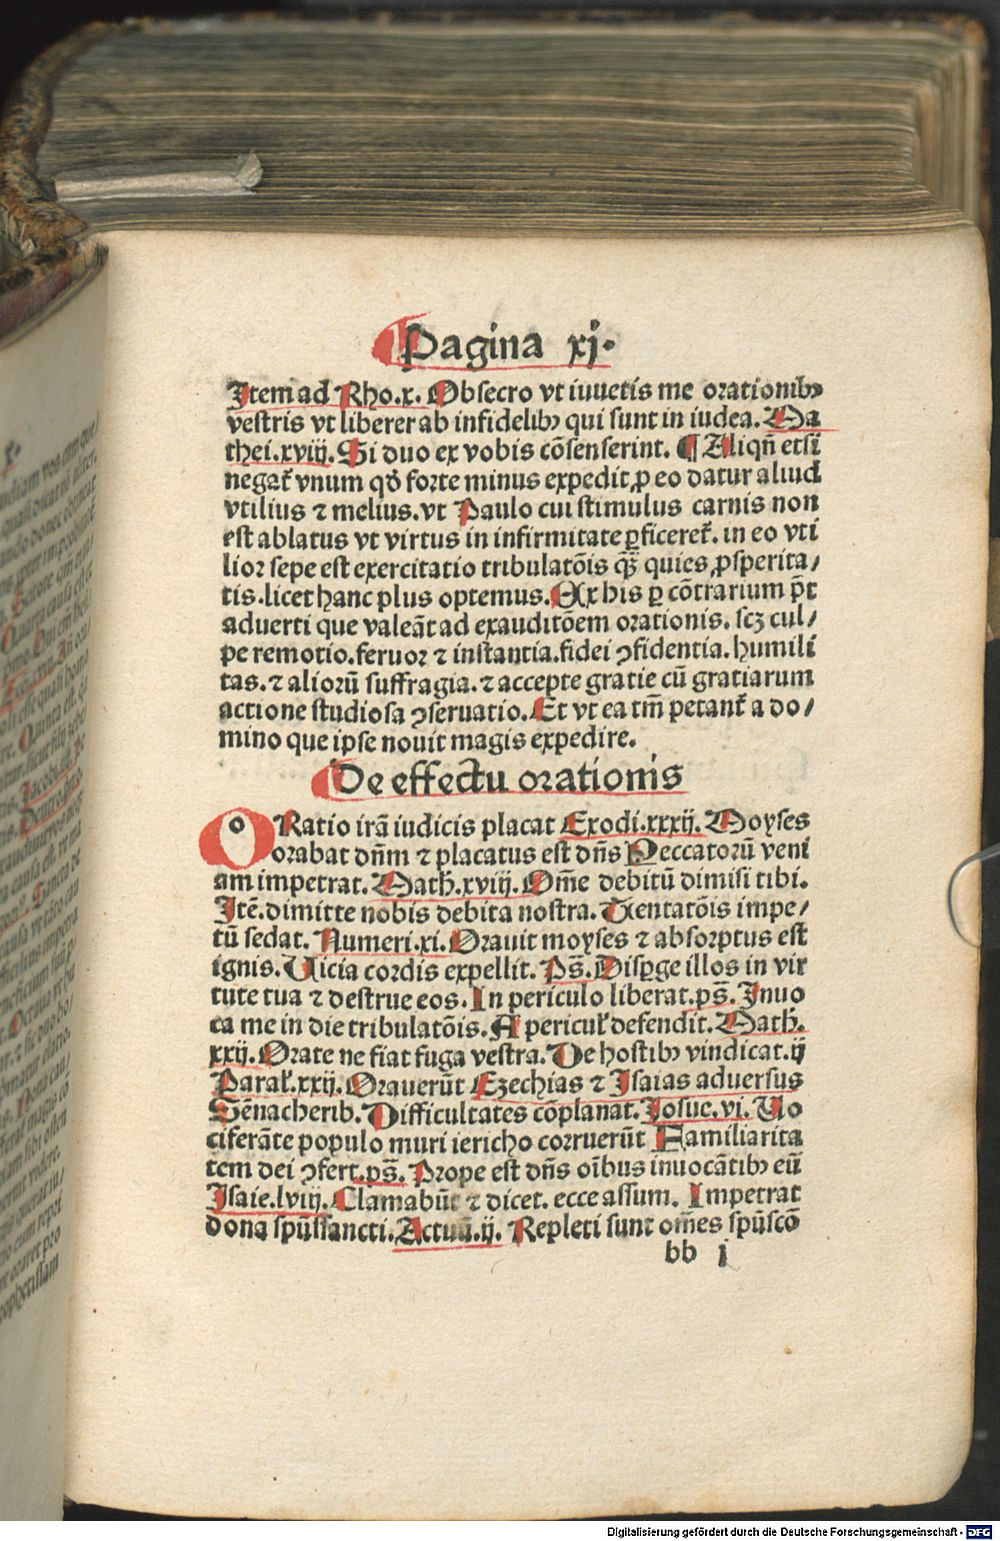 Pagina xj.
Item ad Rho.x. Obsecro vt iuuetis me orationibꝰ
vestris vt liberer ab infidelibꝰ qui sunt in iudea. Ma
thei.xviij. Si duo ex vobis cõsenserint. ¶ Aliqñ etsi
negat᷑ vnum qđ forte minus expedit, ꝓ eo datur aliud
vtilius ⁊ melius. vt Paulo cui stimulus carnis non
est ablatus vt virtus in infirmitate ꝑficeret᷑. in eo vti
lior sepe est exercitatio tribulatõis qƷ̃ quies, ꝓsperita/
tis. licet hanc plus optemus. Ex his ꝑ cõtrarium põt
aduerti que valeãt ad exauditõem orationis. scꝫ cul/
pe remotio. feruor ⁊ instantia. fidei ꝯfidentia. humili
tas. ⁊ aliorũ suffragia. ⁊ accepte gratie cũ gratiarum
actione studiosa ꝯseruatio. Et vt ea tm̃ petant᷑ a do/
mino que ipse nouit magis expedire.
De effectu orationis
ORatio irã iudicis placat Exodi.xxxij. Moyses
orabat dñm ⁊ placatus est dñs Peccatorũ veni
am impetrat. Math̃.xviij. Om̃e debitũ dimisi tibi.
Itẽ. dimitte nobis debita nostra. Tentatõis impe/
tũ sedat. Numeri.xi. Orauit moyses ⁊ absorptus est
ignis. Uicia cordis expellit. Ps̃. Disꝑge illos in vir
tute tua ⁊ destrue eos. In periculo liberat. ps̃. Inuo
ca me in die tribulatõis. A pericul᷑ defendit. Math̃.
xxij. Orate ne fiat fuga vestra. De hostibꝰ vindicat. ij
Paral᷑.xxij. Orauerũt Ezechias ⁊ Isaias aduersus
Sẽnacherib. Difficultates cõplanat. Iosue.vi. Uo
ciferãte populo muri iericho corruerũt Familiarita
tem dei ꝯfert. ps̃. Prope est dñs oĩbus inuocãtibꝰ eũ
Isaie.lviij. Clamabũt ⁊ dicet. ecce assum. Impetrat
dona spũssancti. Actuũ.ij. Repleti sunt om̃es spũscõ
bb i
Digitalisierung gefördert durch die Deutsche Forschungsgemeinschaft - DFG